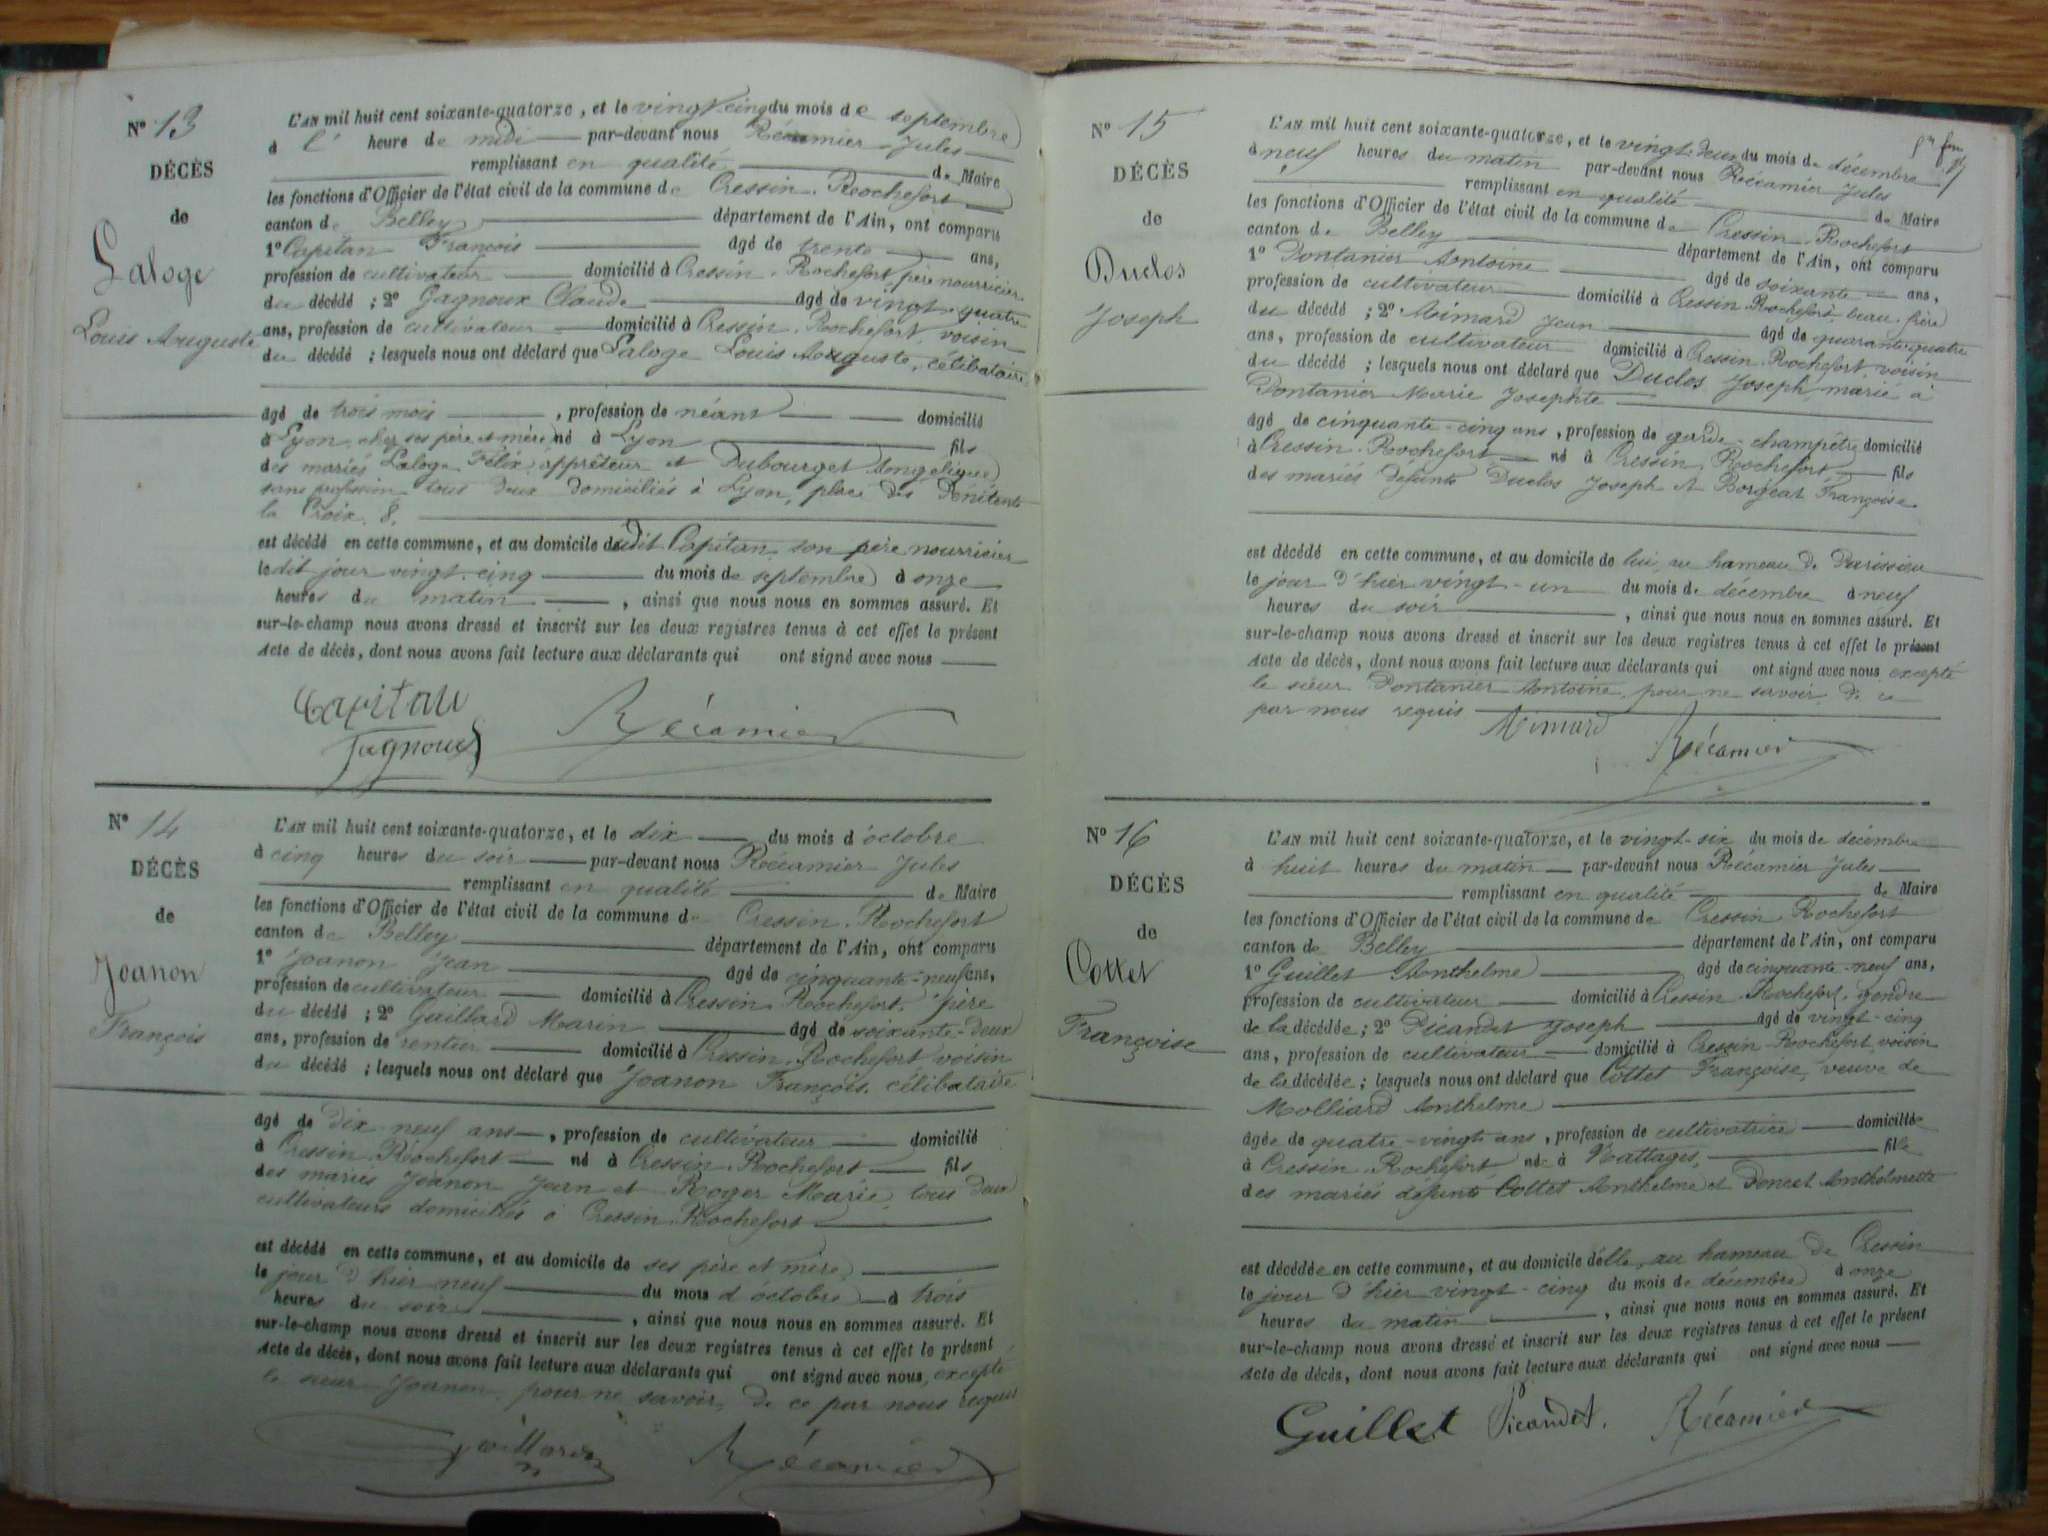 Nº 13
DÉCÈS
de
Laloge
Louis Auguste
L'AN mil huit cent soixante-quatorze, et le vingt-cinq du mois de septembre
à l' heure de midi par-devant nous Récamier Jules
remplissant en qualité de Maire
les fonctions d'Officier de l'état civil de la commune de Cressin-Rochefort
canton de Belley département de l'Ain, ont comparu
1º Capitan François âgé de trente ans,
profession de cultivateur domicilié à Cressin-Rochefort, père nourricier
du décédé ; 2º Gagnoux Claude âgé de vingt-quatre
ans, profession de cultivateur domicilié à Cressin-Rochefort, voisin
du décédé ; lesquels nous ont déclaré que Laloge Louis Auguste, célibataire
âgé de trois mois, profession de néant domicilié
à Lyon, chez ses père et mère né à Lyon fils
des mariés Laloge Félix, apprêteur et Dubourget Angélique
sans profession tous deux domiciliés à Lyon, place des Pénitents
la Croix, 8.
est décédé en cette commune, et au domicile dudit Capitan son père nourricier
ledit jour vingt-cinq du mois de septembre à onze
heures du matin, ainsi que nous nous en sommes assuré. Et
sur-le-champ nous avons dressé et inscrit sur les deux registres tenus à cet effet le présent
Acte de décès, dont nous avons fait lecture aux déclarants qui ont signé avec nous
Capitan
Gagnoux Récamier
Nº 14
DÉCÈS
de
Joanon
François
L'AN mil huit cent soixante-quatorze, et le dix du mois d'octobre
à cinq heures du soir par-devant nous Récamier Jules
remplissant en qualité de Maire
les fonctions d'Officier de l'état civil de la commune de Cressin-Rochefort
canton de Belley département de l'Ain, ont comparu
1º Joanon Jean âgé de cinquante-neuf ans,
profession de cultivateur domicilié à Cressin-Rochefort, père
du décédé ; 2º Gaillard Marin âgé de soixante-deux
ans, profession de rentier domicilié à Cressin-Rochefort voisin
du décédé ; lesquels nous ont déclaré que Joanon François, célibataire
âgé de dix neuf ans, profession de cultivateur domicilié
à Cressin-Rochefort né à Cressin-Rochefort fils
des mariés Joanon Jean et Roger Marie, tous deux
cultivateurs domiciliés à Cressin-Rochefort
est décédé en cette commune, et au domicile de ses père et mère,
le jour d'hier neuf du mois d'octobre à trois
heures du soir, ainsi que nous nous en sommes assuré. Et
sur-le-champ nous avons dressé et inscrit sur les deux registres tenus à cet effet le présent
Acte de décès, dont nous avons fait lecture aux déclarants qui ont signé avec nous, excepté
le sieur Joanon, pour ne savoir, de ce par nous requis
Gaillard Récamier
Nº 15
DÉCÈS
de
Duclos
Joseph
L'AN mil huit cent soixante-quatorze, et le vingt-deux du mois de décembre
à neuf heures du matin par-devant nous Récamier Jules
remplissant en qualité de Maire
les fonctions d'Officier de l'état civil de la commune de Cressin-Rochefort
canton de Belley département de l'Ain, ont comparu
1º Pontanier Antoine âgé de soixante ans,
profession de cultivateur domicilié à Cressin-Rochefort, beau-frère
du décédé ; 2º Mimard Jean âgé de quarante-quatre
ans, profession de cultivateur domicilié à Cressin-Rochefort voisin
du décédé ; lesquels nous ont déclaré que Duclos Joseph marié à
Pontanier Marie Josephte
âgé de cinquante-cinq ans, profession de garde-champêtre domicilié
à Cressin-Rochefort né à Cressin-Rochefort fils
des mariés défunts Duclos Joseph et Borgeat Françoise
est décédé en cette commune, et au domicile de lui, au hameau de Parissieu
le jour d'hier vingt-un du mois de décembre à neuf
heures du soir, ainsi que nous nous en sommes assuré. Et
sur-le-champ nous avons dressé et inscrit sur les deux registres tenus à cet effet le présent
Acte de décès, dont nous avons fait lecture aux déclarants qui ont signé avec nous excepté
le sieur Pontanier Antoine, pour ne savoir, de ce
par nous requis Mimard
Récamier
Nº 16
DÉCÈS
de
Cottet
Françoise
L'AN mil huit cent soixante-quatorze, et le vingt-six du mois de décembre
à huit heures du matin par-devant nous Récamier Jules
remplissant en qualité de Maire
les fonctions d'Officier de l'état civil de la commune de Cressin-Rochefort
canton de Belley département de l'Ain, ont comparu
1º Guillet Anthelme âgé de cinquante-neuf ans,
profession de cultivateur domicilié à Cressin-Rochefort, gendre
de la décédée ; 2º Picandet Joseph âgé de vingt-cinq
ans, profession de cultivateur domicilié à Cressin-Rochefort, voisin
de la décédée ; lesquels nous ont déclaré que Cottet Françoise, veuve de
Molliard Anthelme
âgée de quatre-vingt ans, profession de cultivatrice domiciliée
à Cressin-Rochefort née à Nattages, fille
des mariés défunts Cottet Anthelme et Poncet Anthelmette
est décédée en cette commune, et au domicile d'elle, au hameau de Cressin
le jour d'hier vingt-cinq du mois de décembre à onze
heures du matin, ainsi que nous nous en sommes assuré. Et
sur-le-champ nous avons dressé et inscrit sur les deux registres tenus à cet effet le présent
Acte de décès, dont nous avons fait lecture aux déclarants qui ont signé avec nous
Guillet Picandet. Récamier